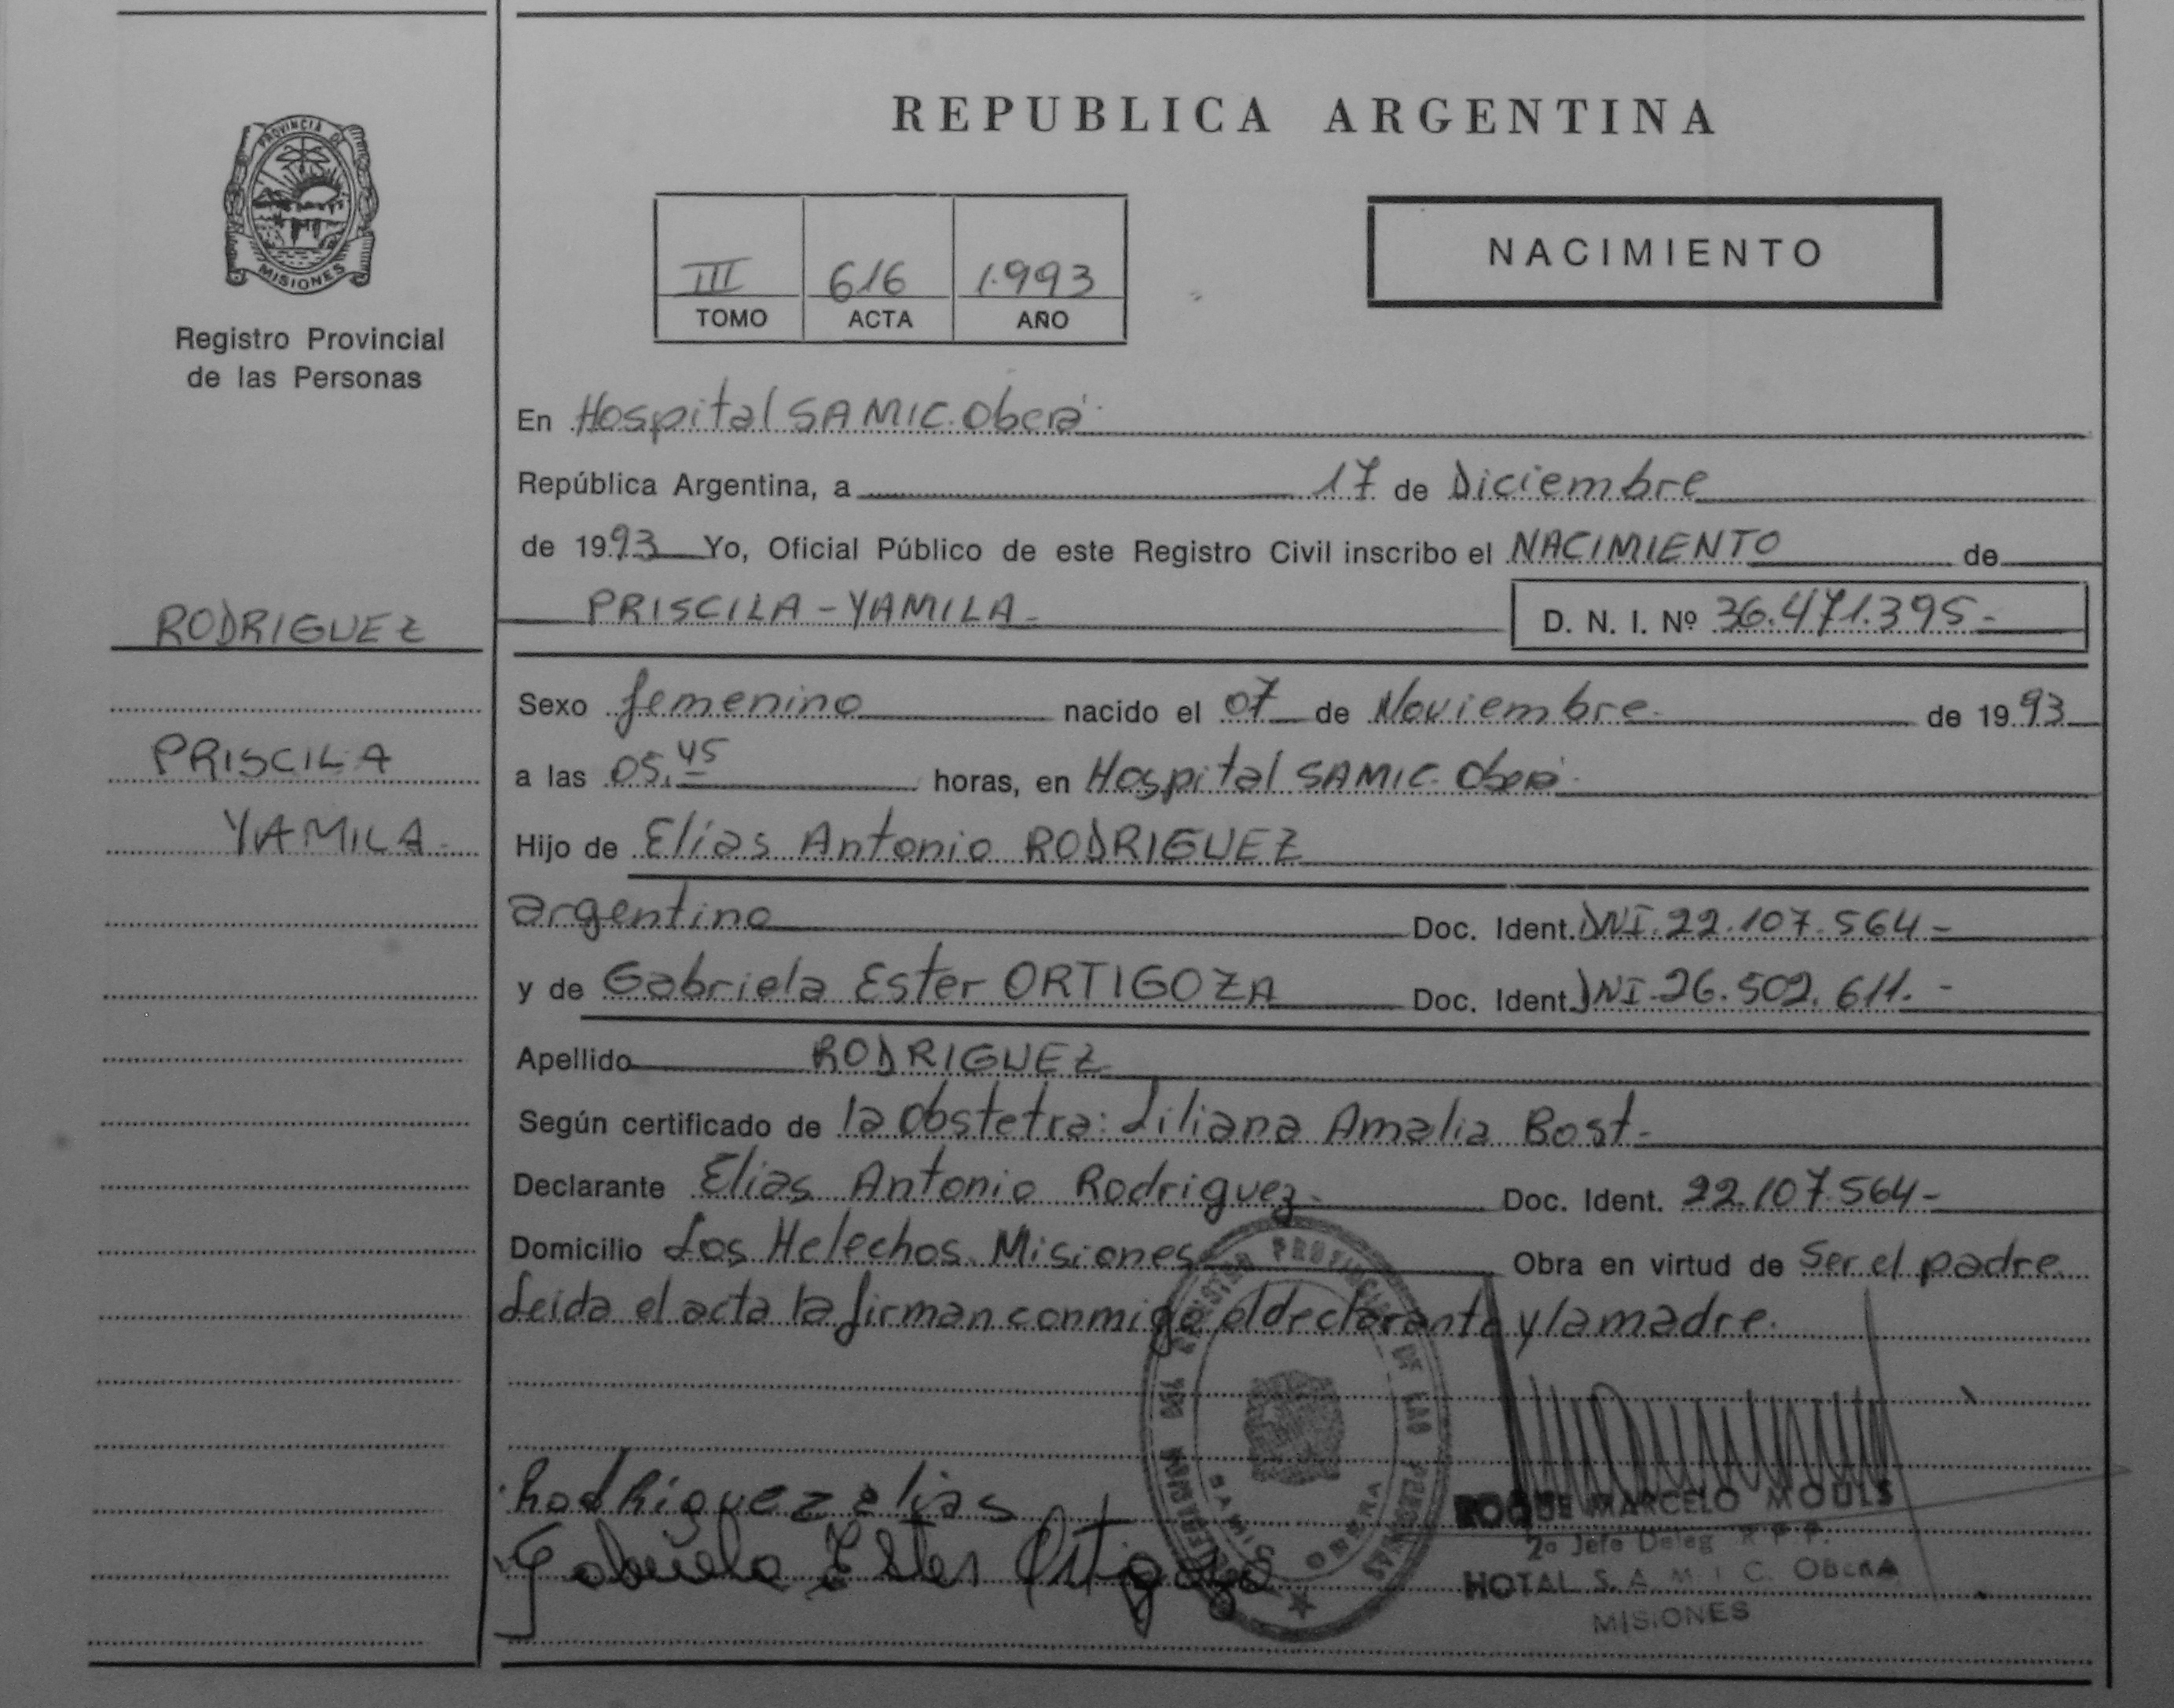 REPUBLICA ARGENTINA
PROVINCIA DE
MISIONES
Registro Provincial
de las Personas
III 616 1.993
TOMO ACTA AÑO
NACIMIENTO
En Hospital SAMIC. Oberá.
República Argentina, a 17 de Diciembre
de 1993 Yo, Oficial Público de este Registro Civil inscribo el NACIMIENTO de
PRISCILA - YAMILA - D. N. I. Nº 36.471.395.-
RODRIGUEZ
PRISCILA
YAMILA.
Sexo femenino nacido el 07 de Noviembre de 1993
a las 05,45 horas, en Hospital SAMIC. Oberá.
Hijo de Elías Antonio RODRIGUEZ
argentino Doc. Ident. DNI. 22.107.564-
y de Gabriela Ester ORTIGOZA Doc. Ident. DNI. 26.502.611.-
Apellido RODRIGUEZ
Según certificado de la Obstetra: Liliana Amalia Bost.
Declarante Elias Antonio Rodriguez. Doc. Ident. 22.107.564-
Domicilio Los Helechos. Misiones Obra en virtud de Ser el padre
Leída el acta la firman conmigo el declarante y la madre.
REGISTRO PROVINCIAL DE LAS PERSONAS
OBERA
Rodriguez elias
Gabriela Ester Ortigoza
ROQUE MARCELO MOULS
2º Jefe Deleg R. P. P.
HOTAL S. A. M. I C. OBERA
MISIONES